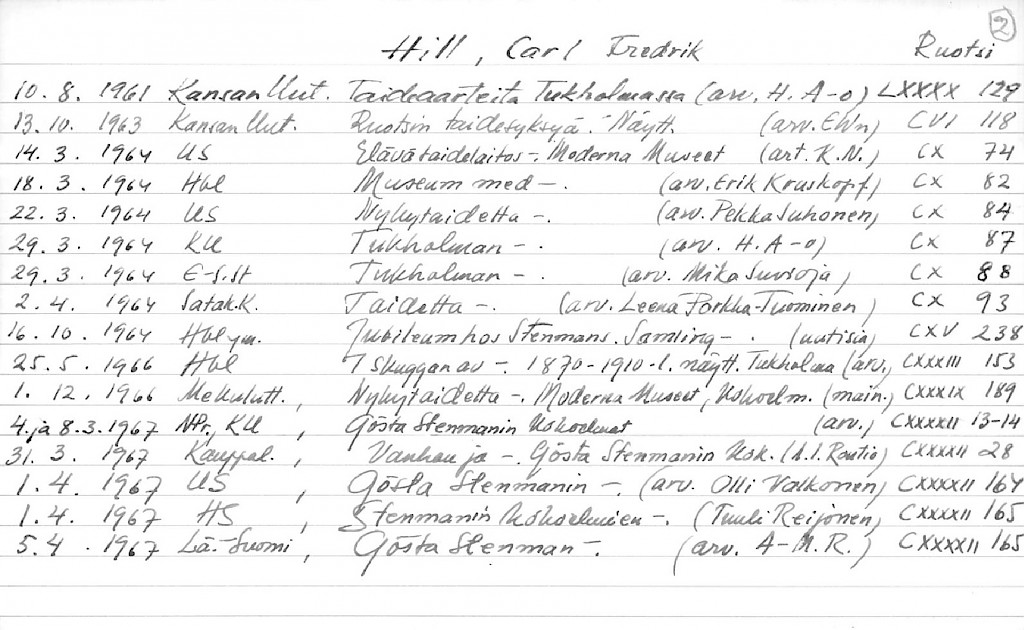 2
Hill, Carl Fredrik Ruotsi
10. 8. 1961 Kansan Uut. Taideaarteita Tukholmassa (arv. H. A-o) LXXXX 129
13. 10. 1963 Kansan Uut. Ruotsin taidesyksyä. Näytt. (arv. EWn) CVI 118
14. 3. 1964 US Elävä taidelaitos -. Moderna Museet (art. K.N.) CX 74
18. 3. 1964 Hbl Museum med -. (arv. Erik Kruskopf) CX 82
22. 3. 1964 US Nykytaidetta -. (arv. Pekka Suhonen) CX 84
29. 3. 1964 KU Tukholman -. (arv. H. A-o) CX 87
29. 3. 1964 E-S.St Tukholman -. (arv. Mika Suvioja) CX 88
2. 4. 1964 Satak.K. Taidetta -. (arv. Leena Porkka-Tuominen) CX 93
16. 10. 1964 Hbl ym. Jubileum hos Stenmans. Samling -. (uutisia) CXV 238
25. 5. 1966 Hbl I skuggan av -. 1870-1910-l. näytt. Tukholma (arv.) CXXXIII 153
1. 12. 1966 Mekulutt., Nykytaidetta -. Moderna Museet, Kokoelm. (main.) CXXXIX 189
4. ja 8.3.1967 NPr, KU, Gösta Stenmanin kokoelmat (arv.) CXXXXII 13-14
31. 3. 1967 Kauppal., Vanhan ja -. Gösta Stenmanin kok. (A.I. Routio) CXXXXII 28
1. 4. 1967 US, Gösta Stenmanin -. (arv. Olli Valkonen) CXXXXII 164
1. 4. 1967 HS, Stenmanin kokoelmien -. (Tuuli Reijonen) CXXXXII 165
5. 4. 1967 Lä.-Suomi, Gösta Stenman -. (arv. A-M.R.) CXXXXII 165